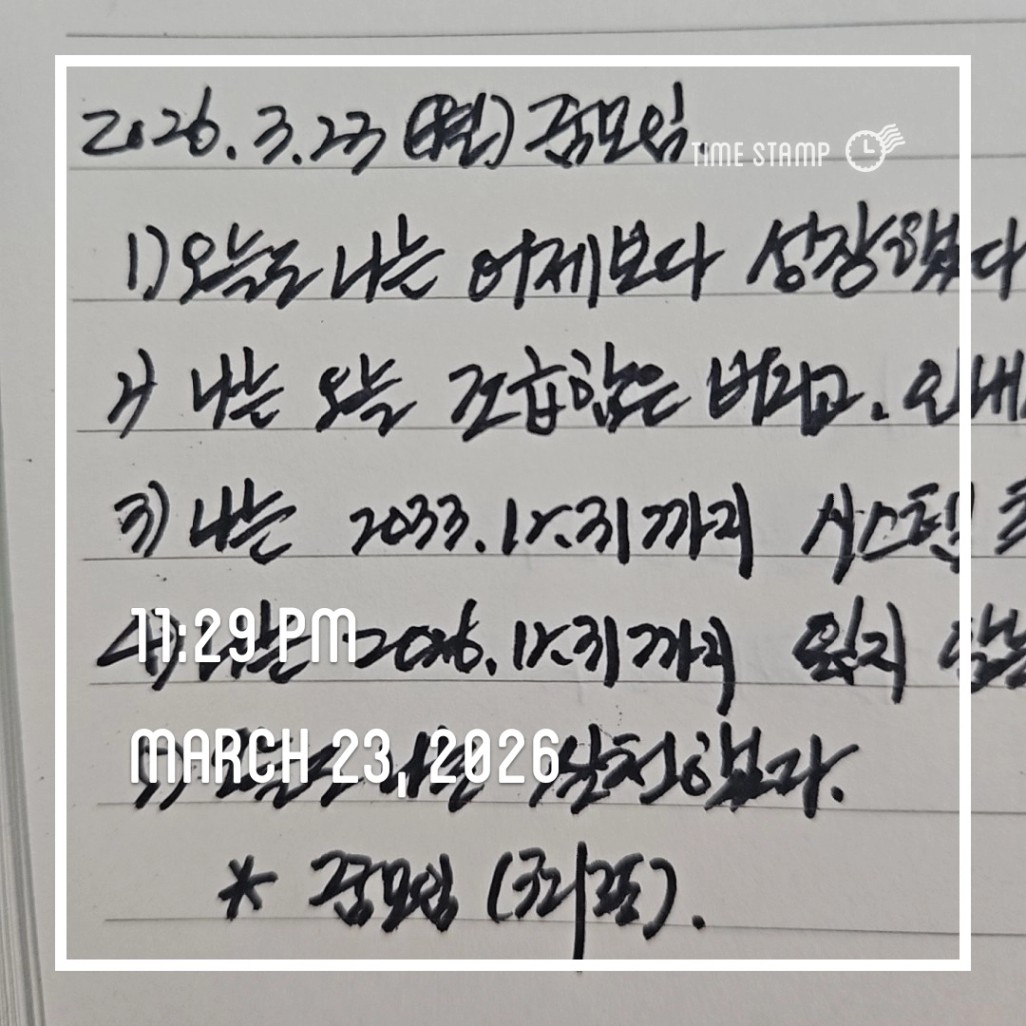 2026. 3. 23 (월) 줌모임.
TIME STAMP
1) 오늘도 나는 어제보다 성장했다
2) 나는 오늘 조급함은 버리고. 인내
3) 나는 2033. 12. 31까지 시스템
11:29 PM
4) 나는 2026. 12. 31까지 않는
MARCH 23, 2026
5) 오늘도 나는 실천했다.
* 줌모임